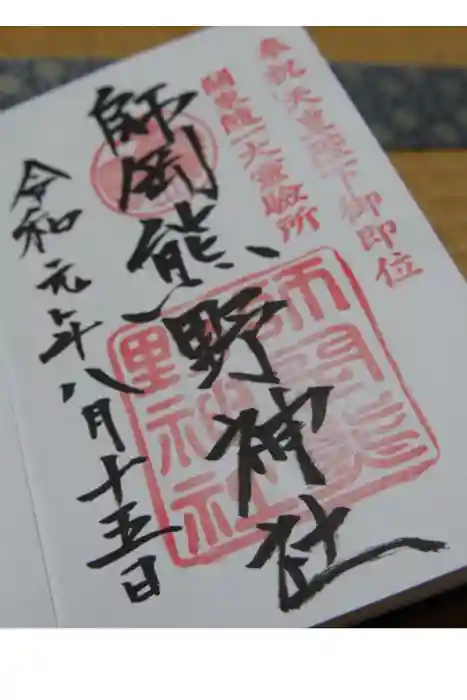 奉祝天皇陛下御即位
關東随一大霊驗所
師岡熊野神社
師岡熊
野神社
令和元年八月十五日